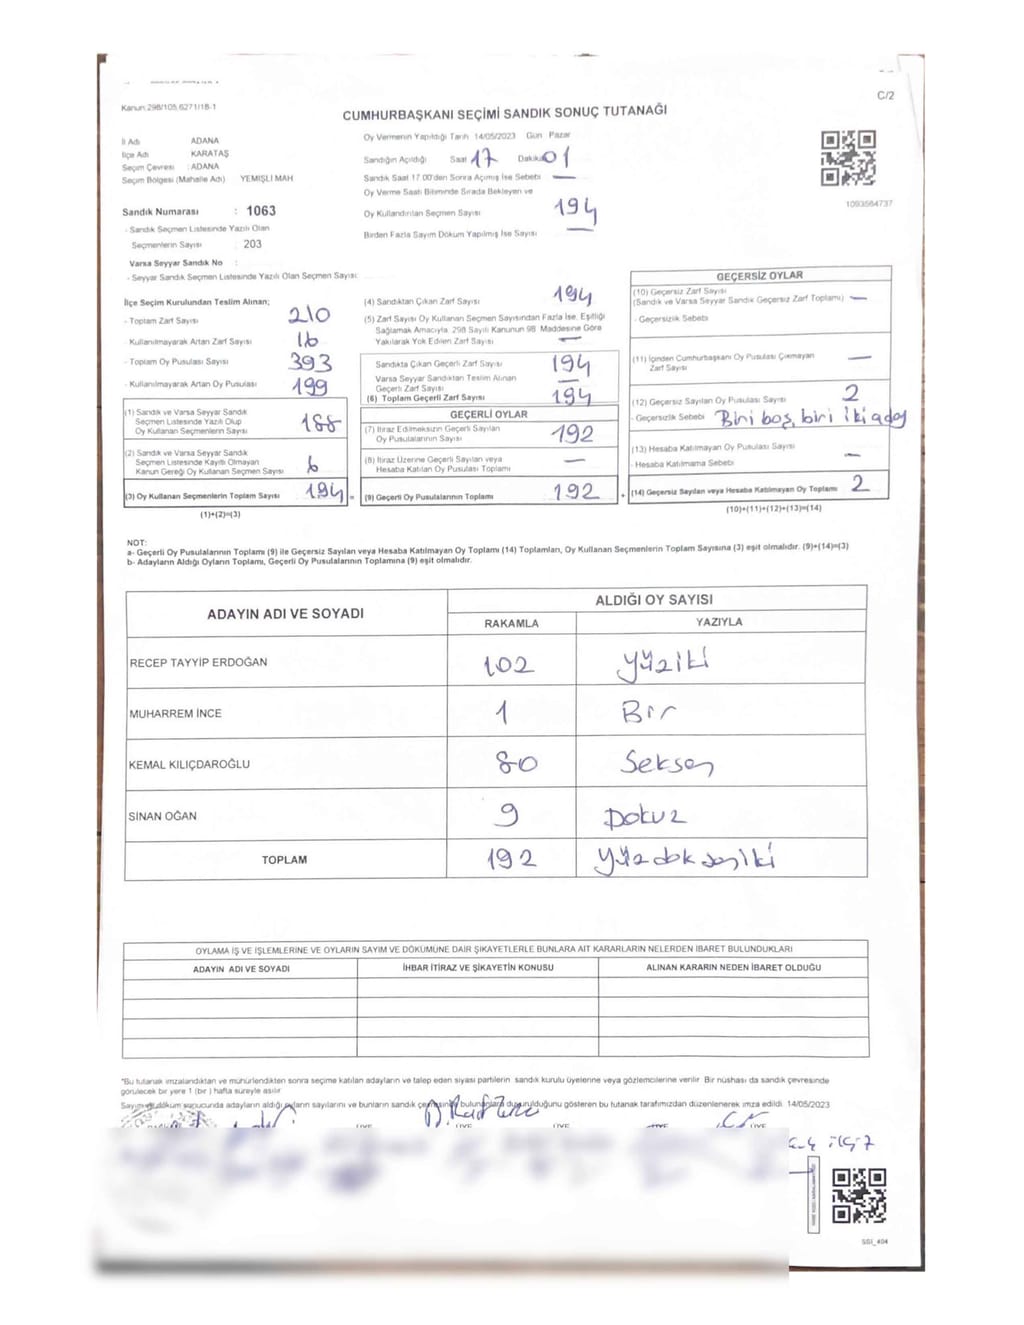 C/2
Kanun 298/105,6271/18-1
CUMHURBAŞKANI SEÇİMİ SANDIK SONUÇ TUTANAĞI
İl Adı ADANA
İlçe Adı KARATAŞ
Seçim Çevresi : ADANA
Seçim Bölgesi (Mahalle Adı) YEMİŞLİ MAH
Oy Vermenin Yapıldığı Tarih 14/05/2023 Gün Pazar
Sandığın Açıldığı Saat 17 Dakika 01
Sandık Saat 17.00'den Sonra Açımış İse Sebebi —
Oy Verme Saati Bitiminde Sırada Bekleyen ve
Oy Kullandırılan Seçmen Sayısı 194
Birden Fazla Sayım Döküm Yapılmış İse Sayısı —
1093564737
Sandık Numarası : 1063
- Sandık Seçmen Listesinde Yazılı Olan
Seçmenlerin Sayısı : 203
Varsa Seyyar Sandık No :
- Seyyar Sandık Seçmen Listesinde Yazılı Olan Seçmen Sayısı:
İlçe Seçim Kurulundan Teslim Alınan;
- Toplam Zarf Sayısı 210
- Kullanılmayarak Artan Zarf Sayısı 16
- Toplam Oy Pusulası Sayısı 393
- Kullanılmayarak Artan Oy Pusulası 199
(1) Sandık ve Varsa Seyyar Sandık
Seçmen Listesinde Yazılı Olup
Oy Kullanan Seçmenlerin Sayısı 188
(2) Sandık ve Varsa Seyyar Sandık
Seçmen Listesinde Kayıtlı Olmayan
Kanun Gereği Oy Kullanan Seçmen Sayısı 6
(3) Oy Kullanan Seçmenlerin Toplam Sayısı 194 =
(1)+(2)=(3)
(4) Sandıktan Çıkan Zarf Sayısı 194
(5) Zarf Sayısı Oy Kullanan Seçmen Sayısından Fazla İse, Eşitliği
Sağlamak Amacıyla 298 Sayılı Kanunun 98 Maddesine Göre
Yakılarak Yok Edilen Zarf Sayısı —
Sandıkta Çıkan Geçerli Zarf Sayısı 194
Varsa Seyyar Sandıktan Teslim Alınan
Geçerli Zarf Sayısı —
(6) Toplam Geçerli Zarf Sayısı 194
GEÇERLİ OYLAR
(7) İtiraz Edilmeksizin Geçerli Sayılan
Oy Pusulalarının Sayısı 192
(8) İtiraz Üzerine Geçerli Sayılan veya
Hesaba Katılan Oy Pusulası Toplamı —
(9) Geçerli Oy Pusulalarının Toplamı 192 +
GEÇERSİZ OYLAR
(10) Geçersiz Zarf Sayısı
(Sandık ve Varsa Seyyar Sandık Geçersiz Zarf Toplamı) —
- Geçersizlik Sebebi
(11) İçinden Cumhurbaşkanı Oy Pusulası Çıkmayan
Zarf Sayısı —
(12) Geçersiz Sayılan Oy Pusulası Sayısı 2
- Geçersizlik Sebebi Biri boş, biri iki aday
(13) Hesaba Katılmayan Oy Pusulası Sayısı —
- Hesaba Katılmama Sebebi
(14) Geçersiz Sayılan veya Hesaba Katılmayan Oy Toplamı 2
(10)+(11)+(12)+(13)=(14)
NOT:
a- Geçerli Oy Pusulalarının Toplamı (9) ile Geçersiz Sayılan veya Hesaba Katılmayan Oy Toplamı (14) Toplamları, Oy Kullanan Seçmenlerin Toplam Sayısına (3) eşit olmalıdır. (9)+(14)=(3)
b- Adayların Aldığı Oyların Toplamı, Geçerli Oy Pusulalarının Toplamına (9) eşit olmalıdır.
ADAYIN ADI VE SOYADI
ALDIĞI OY SAYISI
RAKAMLA YAZIYLA
RECEP TAYYİP ERDOĞAN 102 yüziki
MUHARREM İNCE 1 Bir
KEMAL KILIÇDAROĞLU 80 Seksen
SİNAN OĞAN 9 Dokuz
TOPLAM 192 yüzdoksaniki
OYLAMA İŞ VE İŞLEMLERİNE VE OYLARIN SAYIM VE DÖKÜMÜNE DAİR ŞİKAYETLERLE BUNLARA AİT KARARLARIN NELERDEN İBARET BULUNDUKLARI
ADAYIN ADI VE SOYADI İHBAR İTİRAZ VE ŞİKAYETİN KONUSU ALINAN KARARIN NEDEN İBARET OLDUĞU
*Bu tutanak imzalandıktan ve mühürlendikten sonra seçime katılan adayların ve talep eden siyasi partilerin sandık kurulu üyelerine veya gözlemcilerine verilir. Bir nüshası da sandık çevresinde
görülecek bir yere 1 (bir) hafta süreyle asılır
Sayım ve döküm sonucunda adayların aldığı oyların sayılarını ve bunların sandık çevresinde bulunanlara duyurulduğunu gösteren bu tutanak tarafımızdan düzenlenerek imza edildi. 14/05/2023
ÜYE ÜYE ÜYE ÜYE
SSI_404